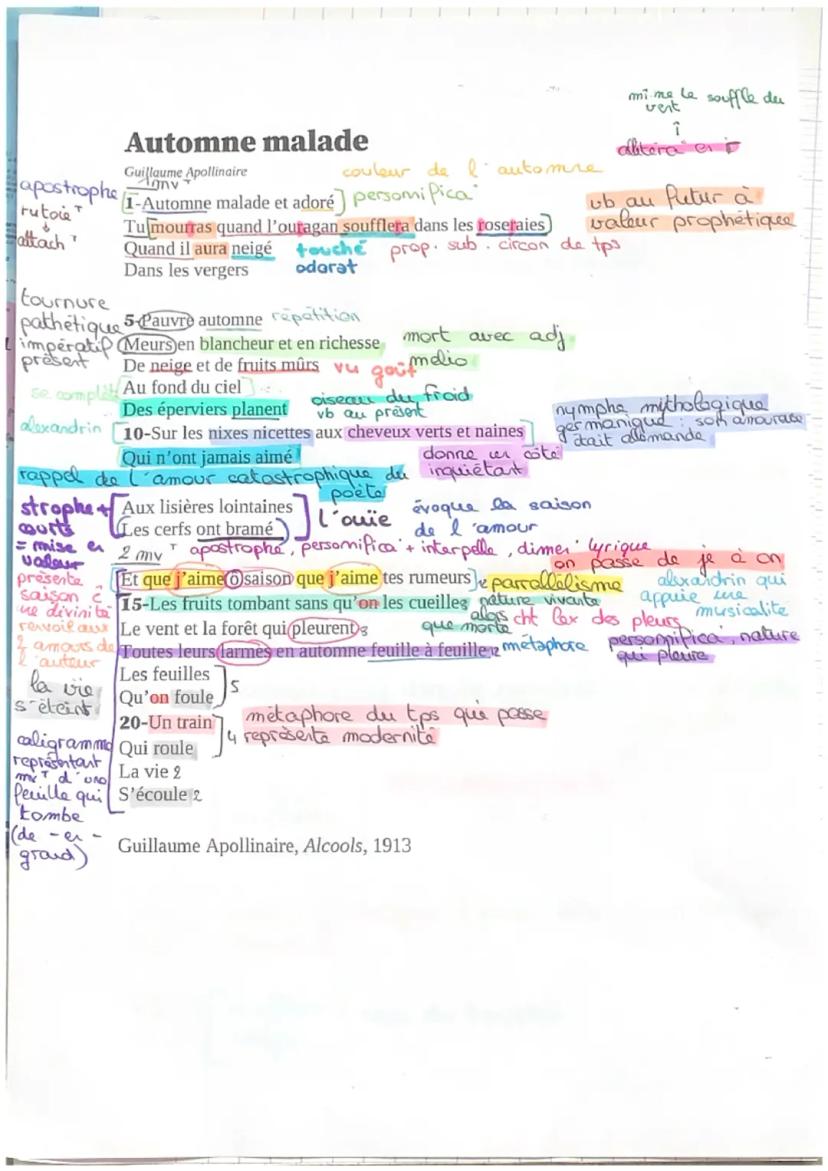 mime le souffle du
vent
allitéra° en r
Automne malade
Guillaume Apollinaire
couleur de l'automne
1 mv^T
apostrophe
1-Automne malade et adoré
personnifica°
vb au futur à
rutoie^T
Tu mourras quand l'ouragan soufflera dans les roseraies
valeur prophétique
attach^T
Quand il aura neigé
touché
prop. sub. circon de tps
Dans les vergers
odorat
tournure
pathétique
5-Pauvre automne
répétition
impératif
présent
Meurs en blancheur et en richesse
mort avec adj
mélio
De neige et de fruits mûrs
vu goût
se complèt
Au fond du ciel
oiseau du froid
Des éperviers planent
vb au présent
nymphe mythologique
germanique : son amoureuse
était allemande
alexandrin
10-Sur les nixes nicettes aux cheveux verts et naines
Qui n'ont jamais aimé
donne un côté
inquiétant
rappel de l'amour catastrophique du
poète
strophe +
courts
= mise en
valeur
Aux lisières lointaines
Les cerfs ont bramé
l'ouïe
évoque la saison
de l'amour
2 mv^T
apostrophe, personnifica° + interpelle, dimen° lyrique
on passe de je à on
présente
saison c
une divinité
Et que j'aime ô saison que j'aime tes rumeurs
parrallélisme
alexandrin qui
appuie une
musicalité
15-Les fruits tombant sans qu'on les cueille
nature vivante
alors
que morte
renvoi aux
2 amours de
l'auteur
Le vent et la forêt qui pleurent
cht lex des pleurs
Toutes leurs larmes en automne feuille à feuille
métaphore
personnifica°, nature
qui pleure
la vie
s'éteint
Les feuilles
Qu'on foule
5
20-Un train
Qui roule
4
métaphore du tps qui passe
représente modernité
La vie 2
S'écoule 2
caligramme
représentant
mv^T d'une
feuille qui
tombe
(de - en -
grand)
Guillaume Apollinaire, Alcools, 1913